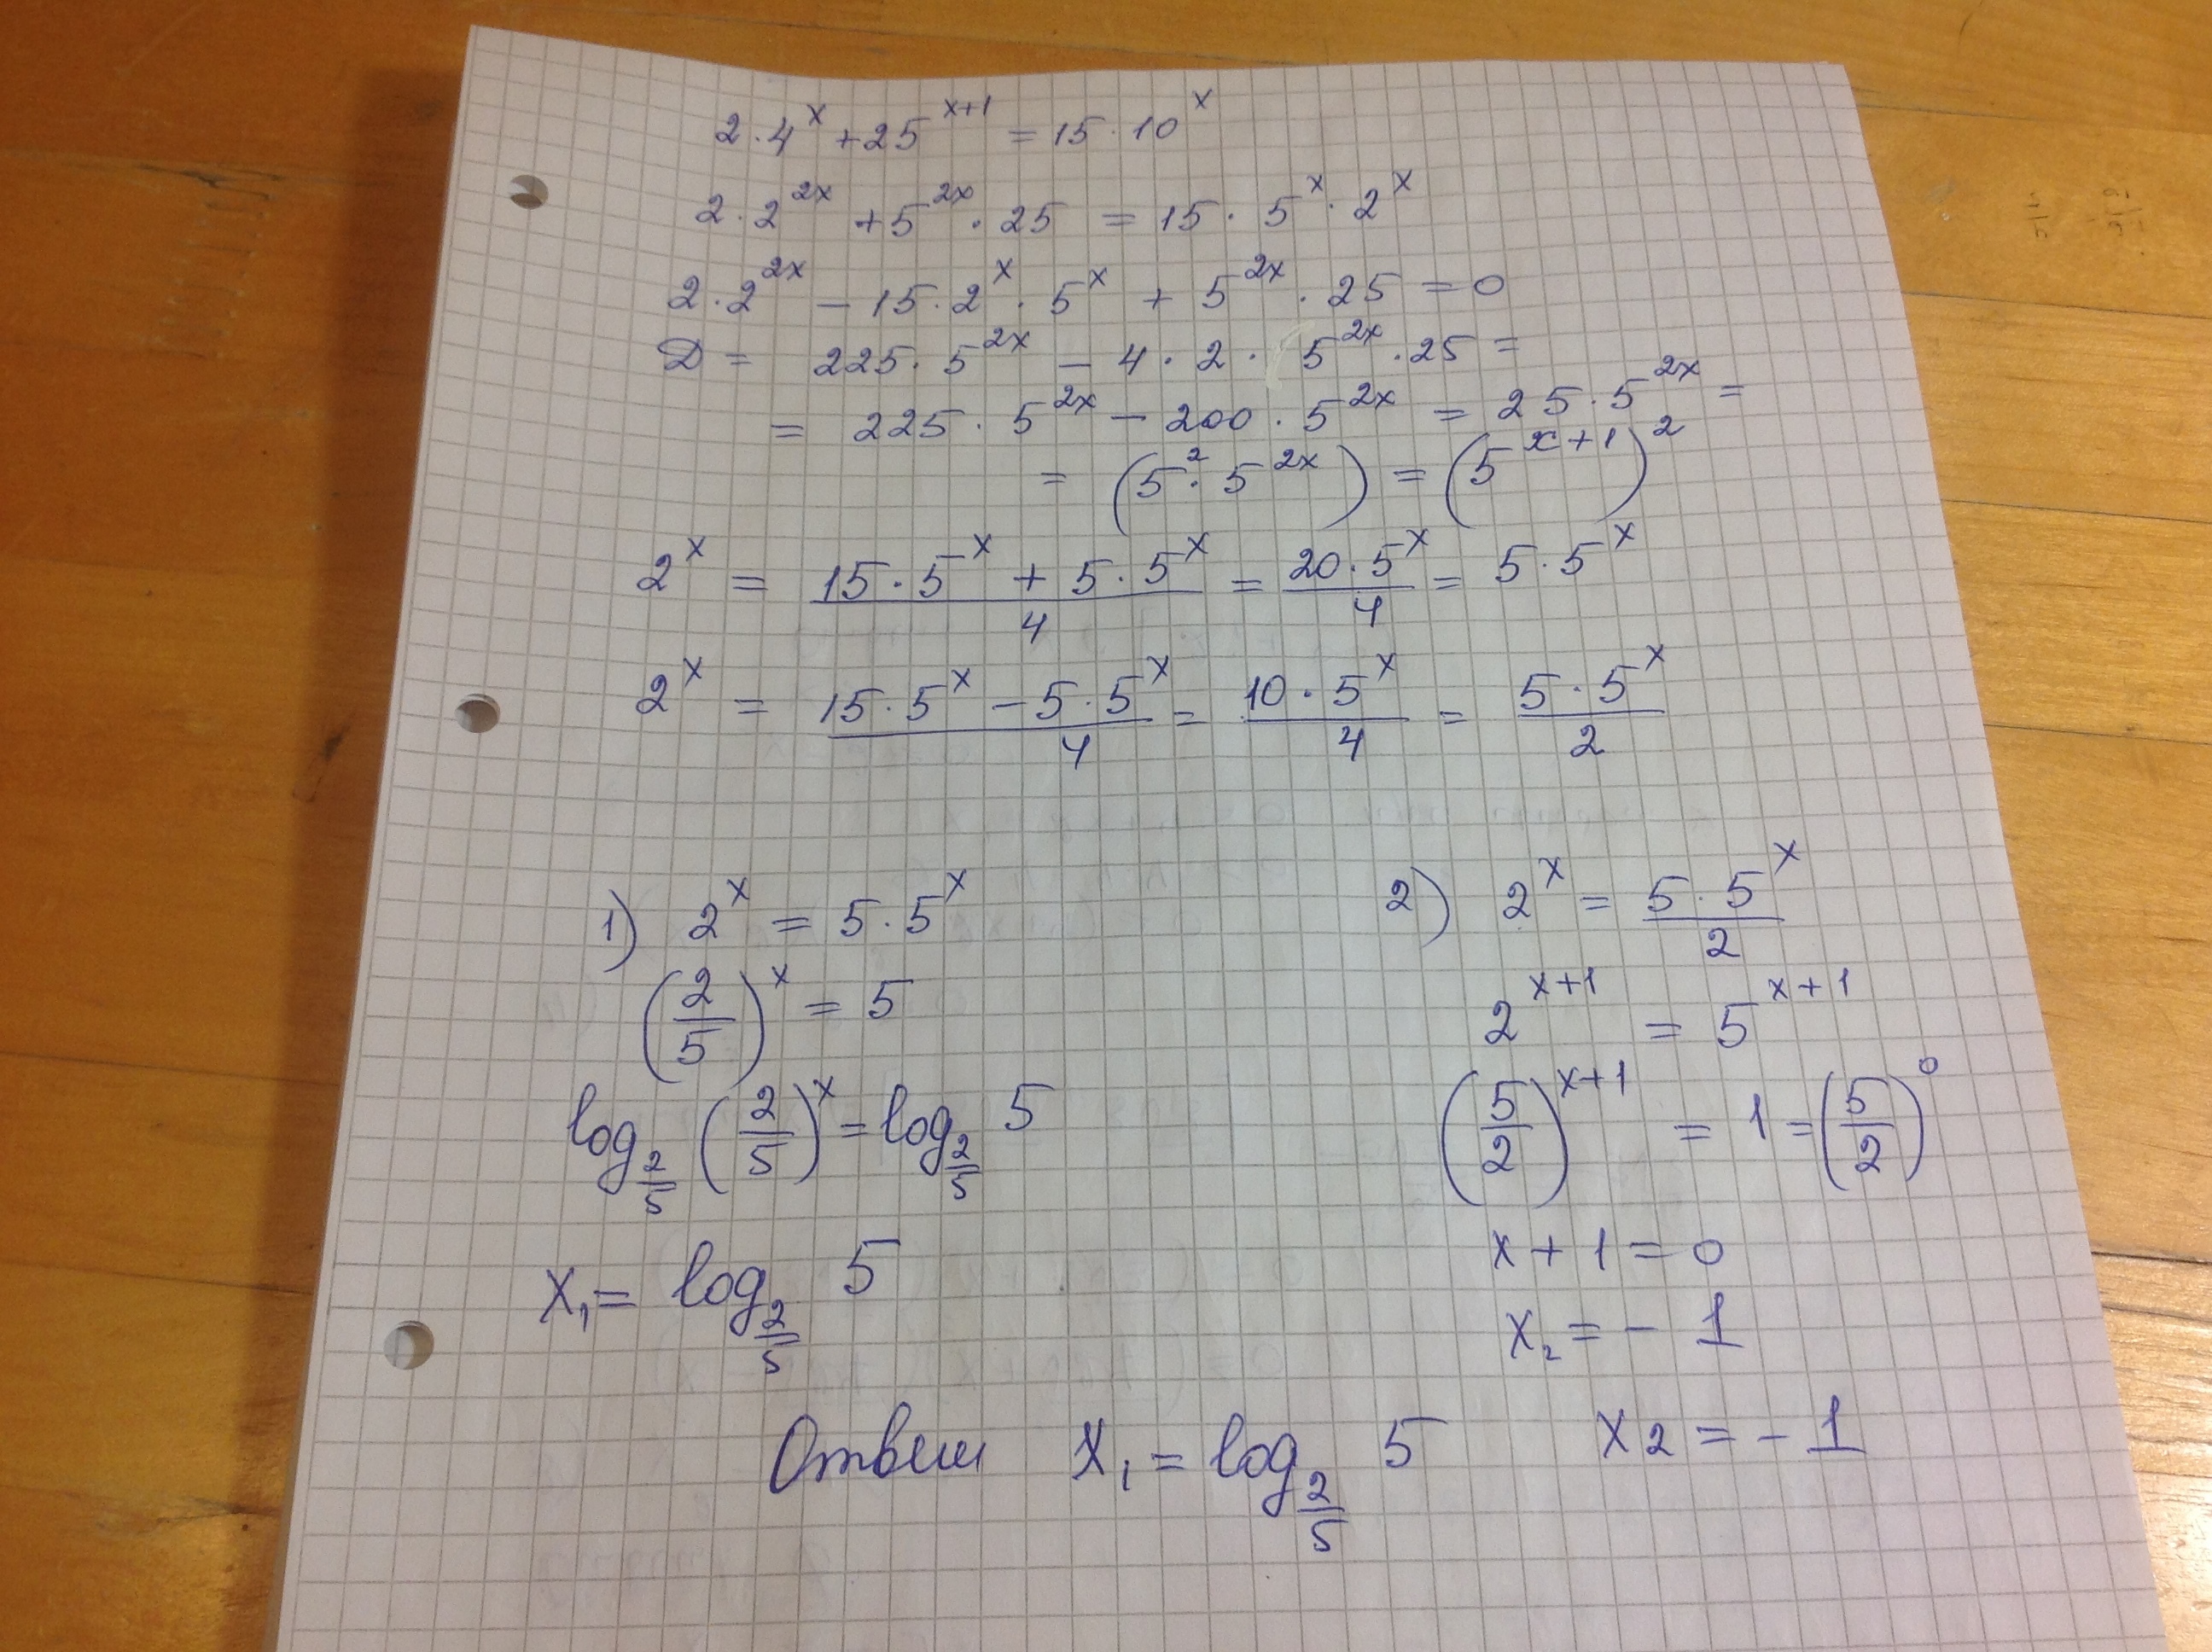 2·4^x + 25^(x+1) = 15·10^x
2·2^(2x) + 5^(2x)·25 = 15·5^x·2^x
2·2^(2x) − 15·2^x·5^x + 5^(2x)·25 = 0
D = 225·5^(2x) − 4·2·5^(2x)·25 =
= 225·5^(2x) − 200·5^(2x) = 25·5^(2x) =
= (5^2·5^(2x)) = (5^(x+1))^2
2^x = (15·5^x + 5·5^x)/4 = (20·5^x)/4 = 5·5^x
2^x = (15·5^x − 5·5^x)/4 = (10·5^x)/4 = (5·5^x)/2
1) 2^x = 5·5^x
(2/5)^x = 5
log_(2/5) (2/5)^x = log_(2/5) 5
x₁ = log_(2/5) 5
2) 2^x = (5·5^x)/2
2^(x+1) = 5^(x+1)
(5/2)^(x+1) = 1 = (5/2)^0
x + 1 = 0
x₂ = −1
Ответ x₁ = log_(2/5) 5 x2 = −1